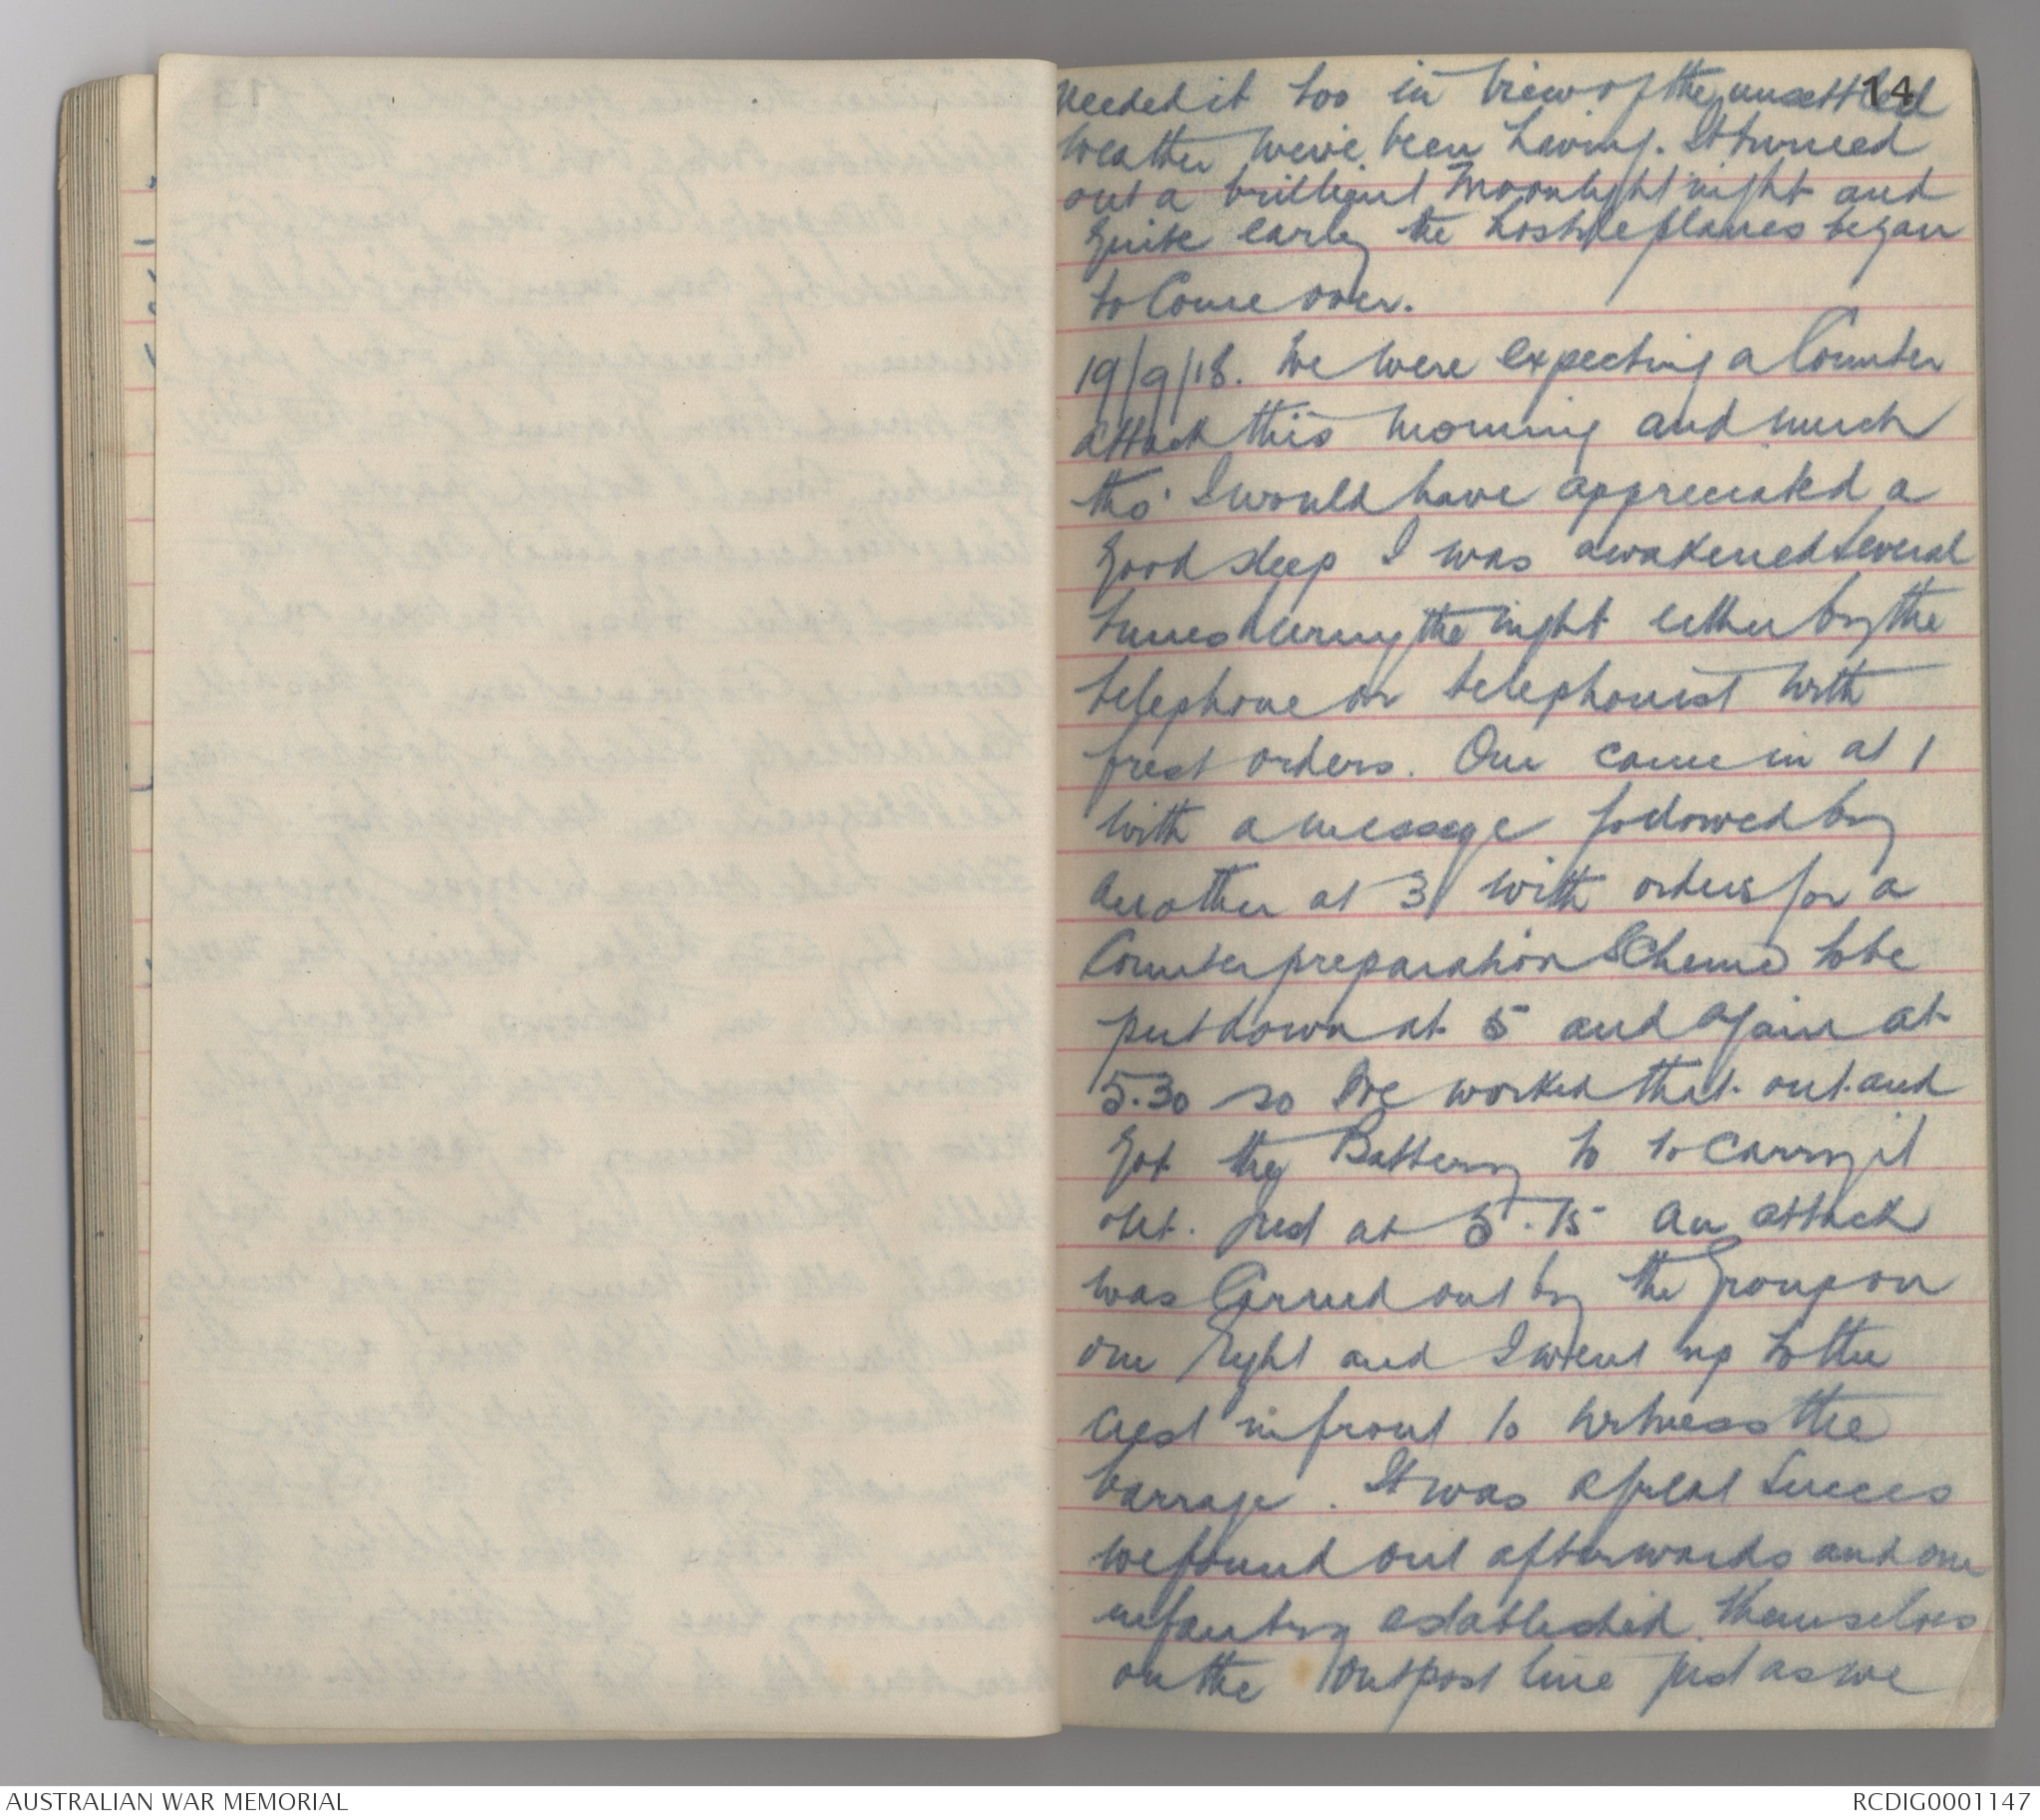 14
needed it too in view of the unsettled
weather we've been having. It turned
out a brilliant moonlight night and
quite early the hostile planes began
to come over.
19/9/18. We were expecting a Counter
attack this morning and much
tho' I would have appreciated a
good sleep I was awakened several
times during the night either by the
telephone or telephonist with
fresh orders. One came in at 1
with a message followed by
another at 3 with orders for a
Counter preparation Scheme to be
put down at 5 and again at
5.30 so we worked that out and
got the Battery to to carry it
out. Just at 5.15 an attack
was Carried out by the Group on
our right and I went up to the
crest in front to witness the
barrage. It was a great success
we found out afterwards and our
infantry established themselves
on the outpost line just as we
AUSTRALIAN WAR MEMORIAL
RCDIG0001147